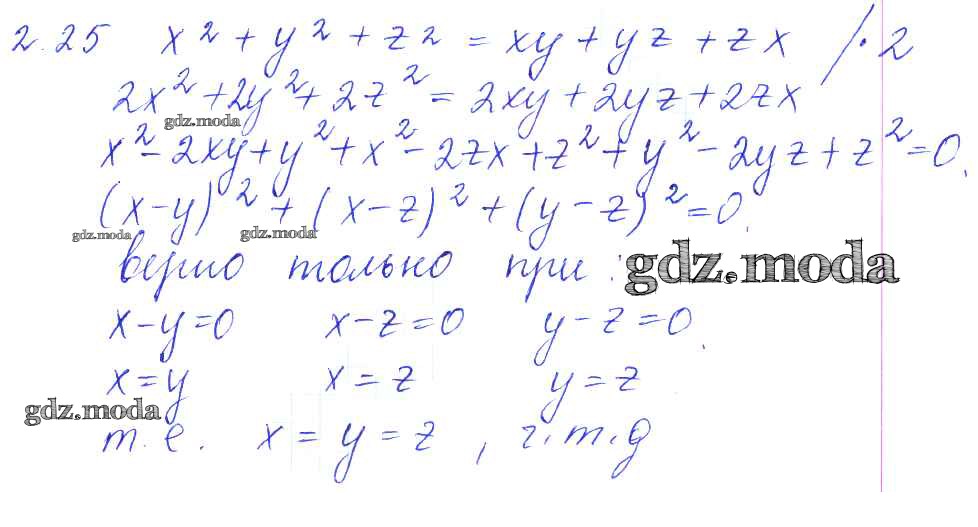 2.25 x² + y² + z² = xy + yz + zx /·2
2x² + 2y² + 2z² = 2xy + 2yz + 2zx
gdz.moda
x² - 2xy + y² + x² - 2zx + z² + y² - 2yz + z² = 0
(x-y)² + (x-z)² + (y-z)² = 0
gdz.moda gdz.moda
верно только при: gdz.moda
x-y=0 x-z=0 y-z=0
x=y x=z y=z
gdz.moda
т.е. x = y = z, ч.т.д